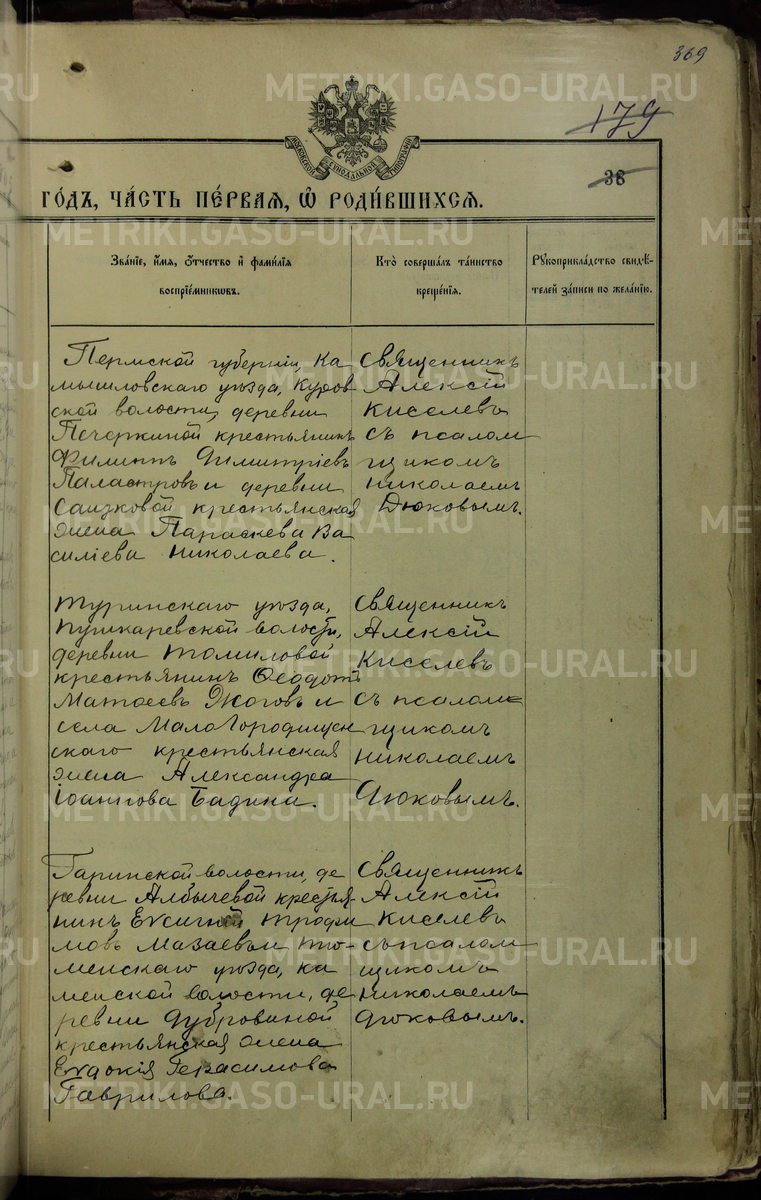 369
179
МОСКОВСКОЙ СѴНОДАЛЬНОЙ ТИПОГРАФІИ
38
ГО́ДЪ, ЧА́СТЬ ПЕ́РВАѦ, Ѡ҆ РОДИ́ВШИХСѦ.
Зва́нїе, и҆́мѧ, Ѻ҆́тчество и҆ фами́лїѧ
воспрїе́мникѡвъ.
Кто̀ соверша́лъ та́инство
креще́нїѧ.
Рꙋкоприкла́дство свидѣ́-
телей за́писи по жела́нїю.
Пермской губерніи, Ка
мышловскаго уѣзда, Куров
ской волости, деревни
Печеркиной крестьянинъ
Филиппъ Димитріевъ
Паластровъ и деревни
крестьянская
жена Параскева Ва
силіева Николаева.
Священникъ
Алексій
Киселевъ
съ псалом
щикомъ
Николаемъ
Дюковымъ.
Туринскаго уѣзда,
Пушкаревской волости,
деревни Томиловой
крестьянинъ Ѳеодотъ
Матѳеевъ Жоговъ и
села Мало Городищен
скаго крестьянская
жена Александра
Іоаннова Бадина.
Священникъ
Алексій
Киселевъ
съ псалом
щикомъ
Николаемъ
Дюковымъ.
Гаринской волости, де
ревни Албычевой крестья
нинъ Трофи
мовъ Мазаевъ и Тю-
менскаго уѣзда, Ка
менской волости, де
ревни Дубровиной
крестьянская жена
Евдокія Герасимова
Гаврилова.
Священникъ
Алексій
Киселевъ
съ псалом
щикомъ
Николаемъ
Дюковымъ.
METRIKI.GASO-URAL.RU